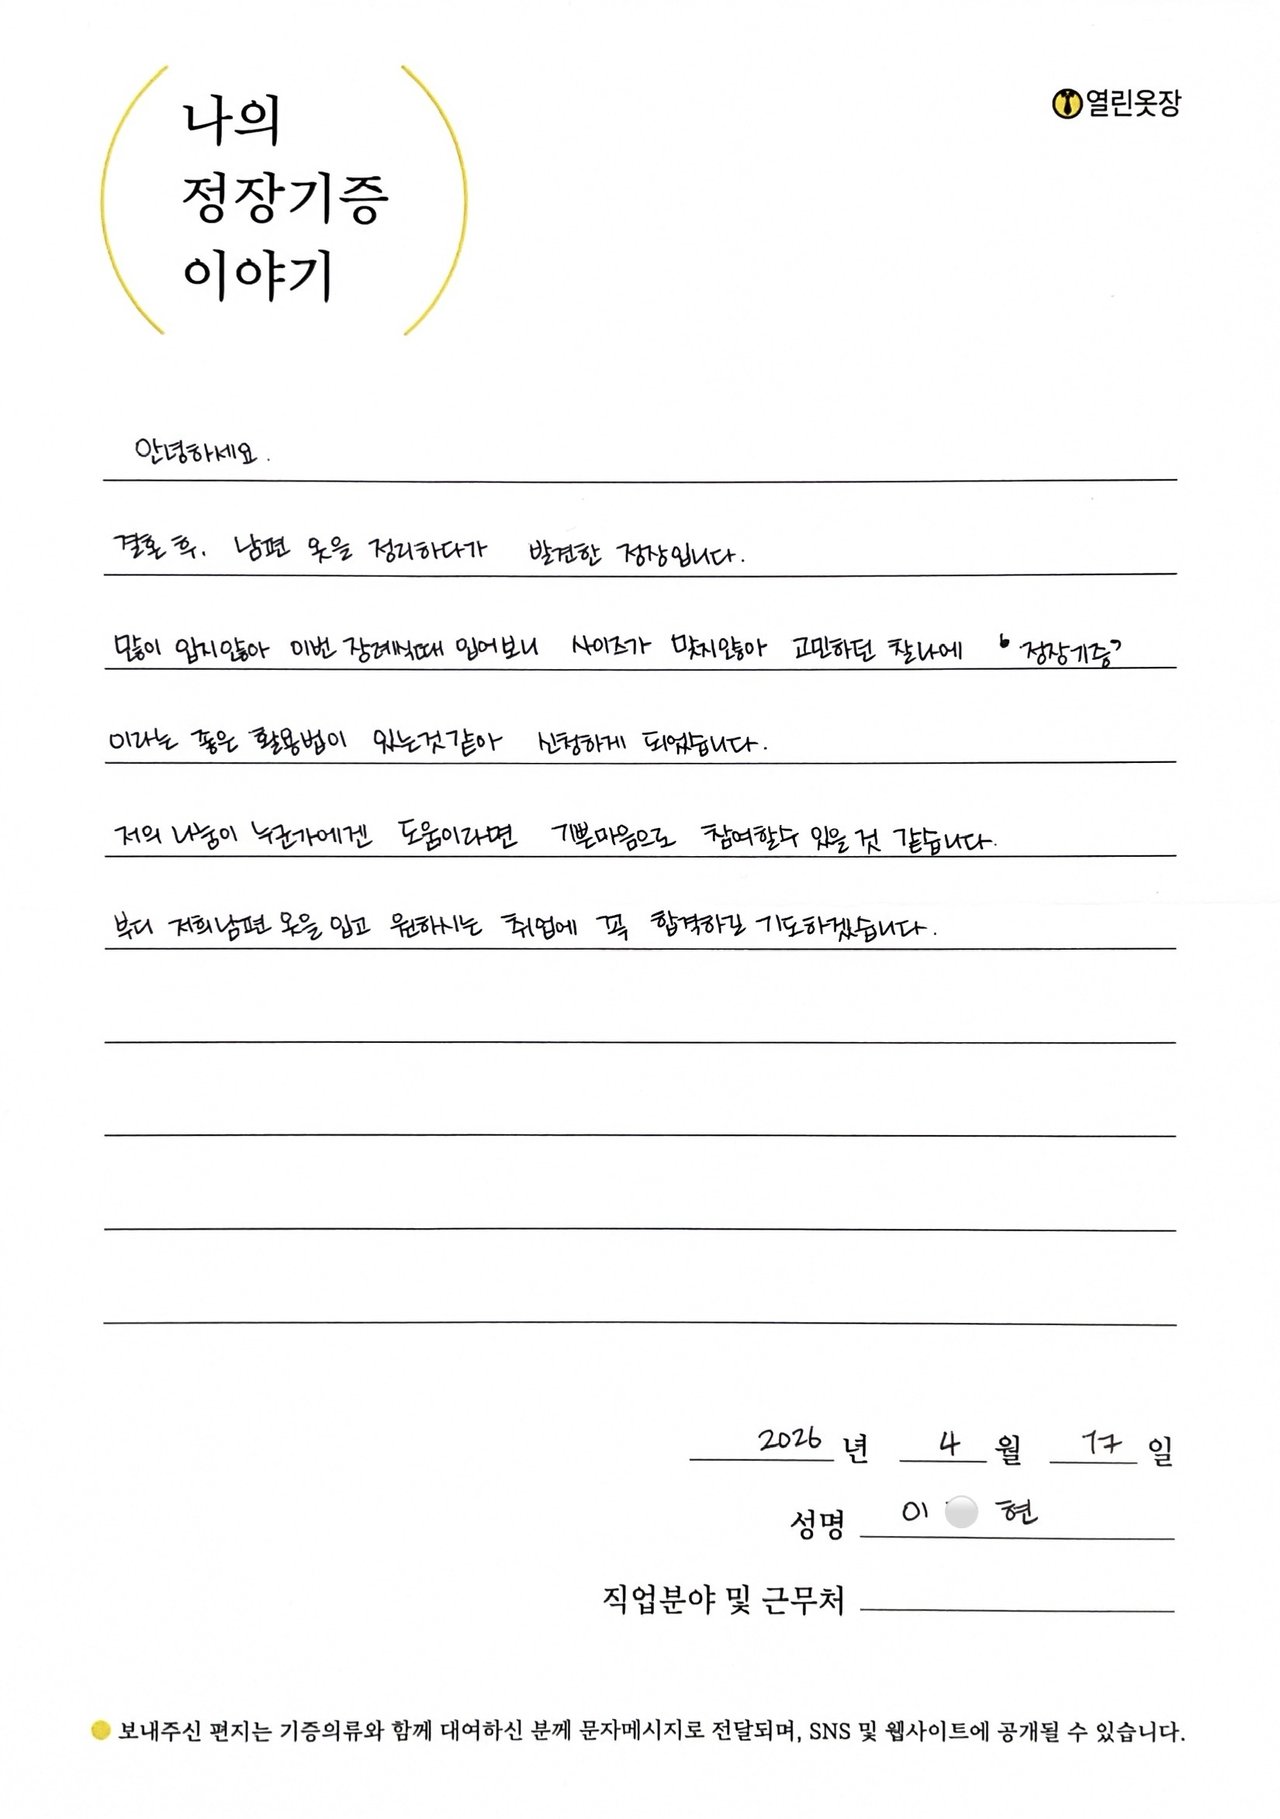 나의
정장기증
이야기
열린옷장
안녕하세요.
결혼 후, 남편 옷을 정리하다가 발견한 정장입니다.
많이 입지않아 이번 장례식때 입어보니 사이즈가 맞지않아 고민하던 찰나에 "정장기증"
이라는 좋은 활용법이 있는것같아 신청하게 되었습니다.
저의 나눔이 누군가에겐 도움이라면 기쁜마음으로 참여할수 있을 것 같습니다.
부디 저희남편 옷을 입고 원하시는 취업에 꼭 합격하길 기도하겠습니다.
2026 년 4 월 17 일
성명 이 현
직업분야 및 근무처
보내주신 편지는 기증의류와 함께 대여하신 분께 문자메시지로 전달되며, SNS 및 웹사이트에 공개될 수 있습니다.